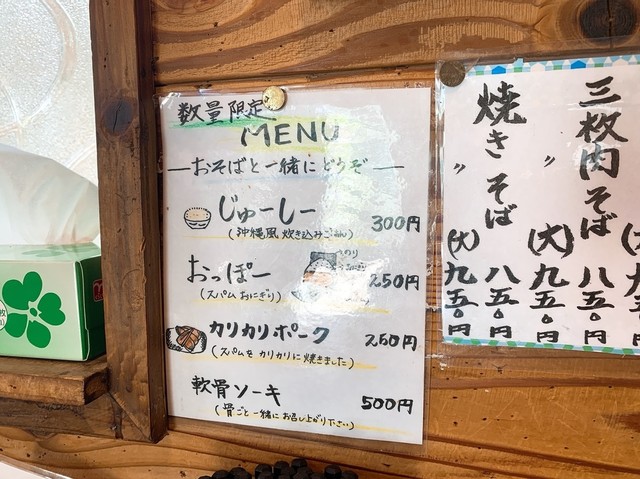 数量限定
MENU
おそばと一緒にどうぞ
じゅーしー 300円
(沖縄風 炊き込みごはん)
おっぽー 250円
(スパムおにぎり)
カリカリポーク 250円
(スパムをカリカリに焼きました)
軟骨ソーキ 500円
(骨ごと一緒にお召し上がり下さい)
三枚肉そば 八五〇円
〃 (大) 九五〇円
焼きそば 八五〇円
〃 (大) 九五〇円